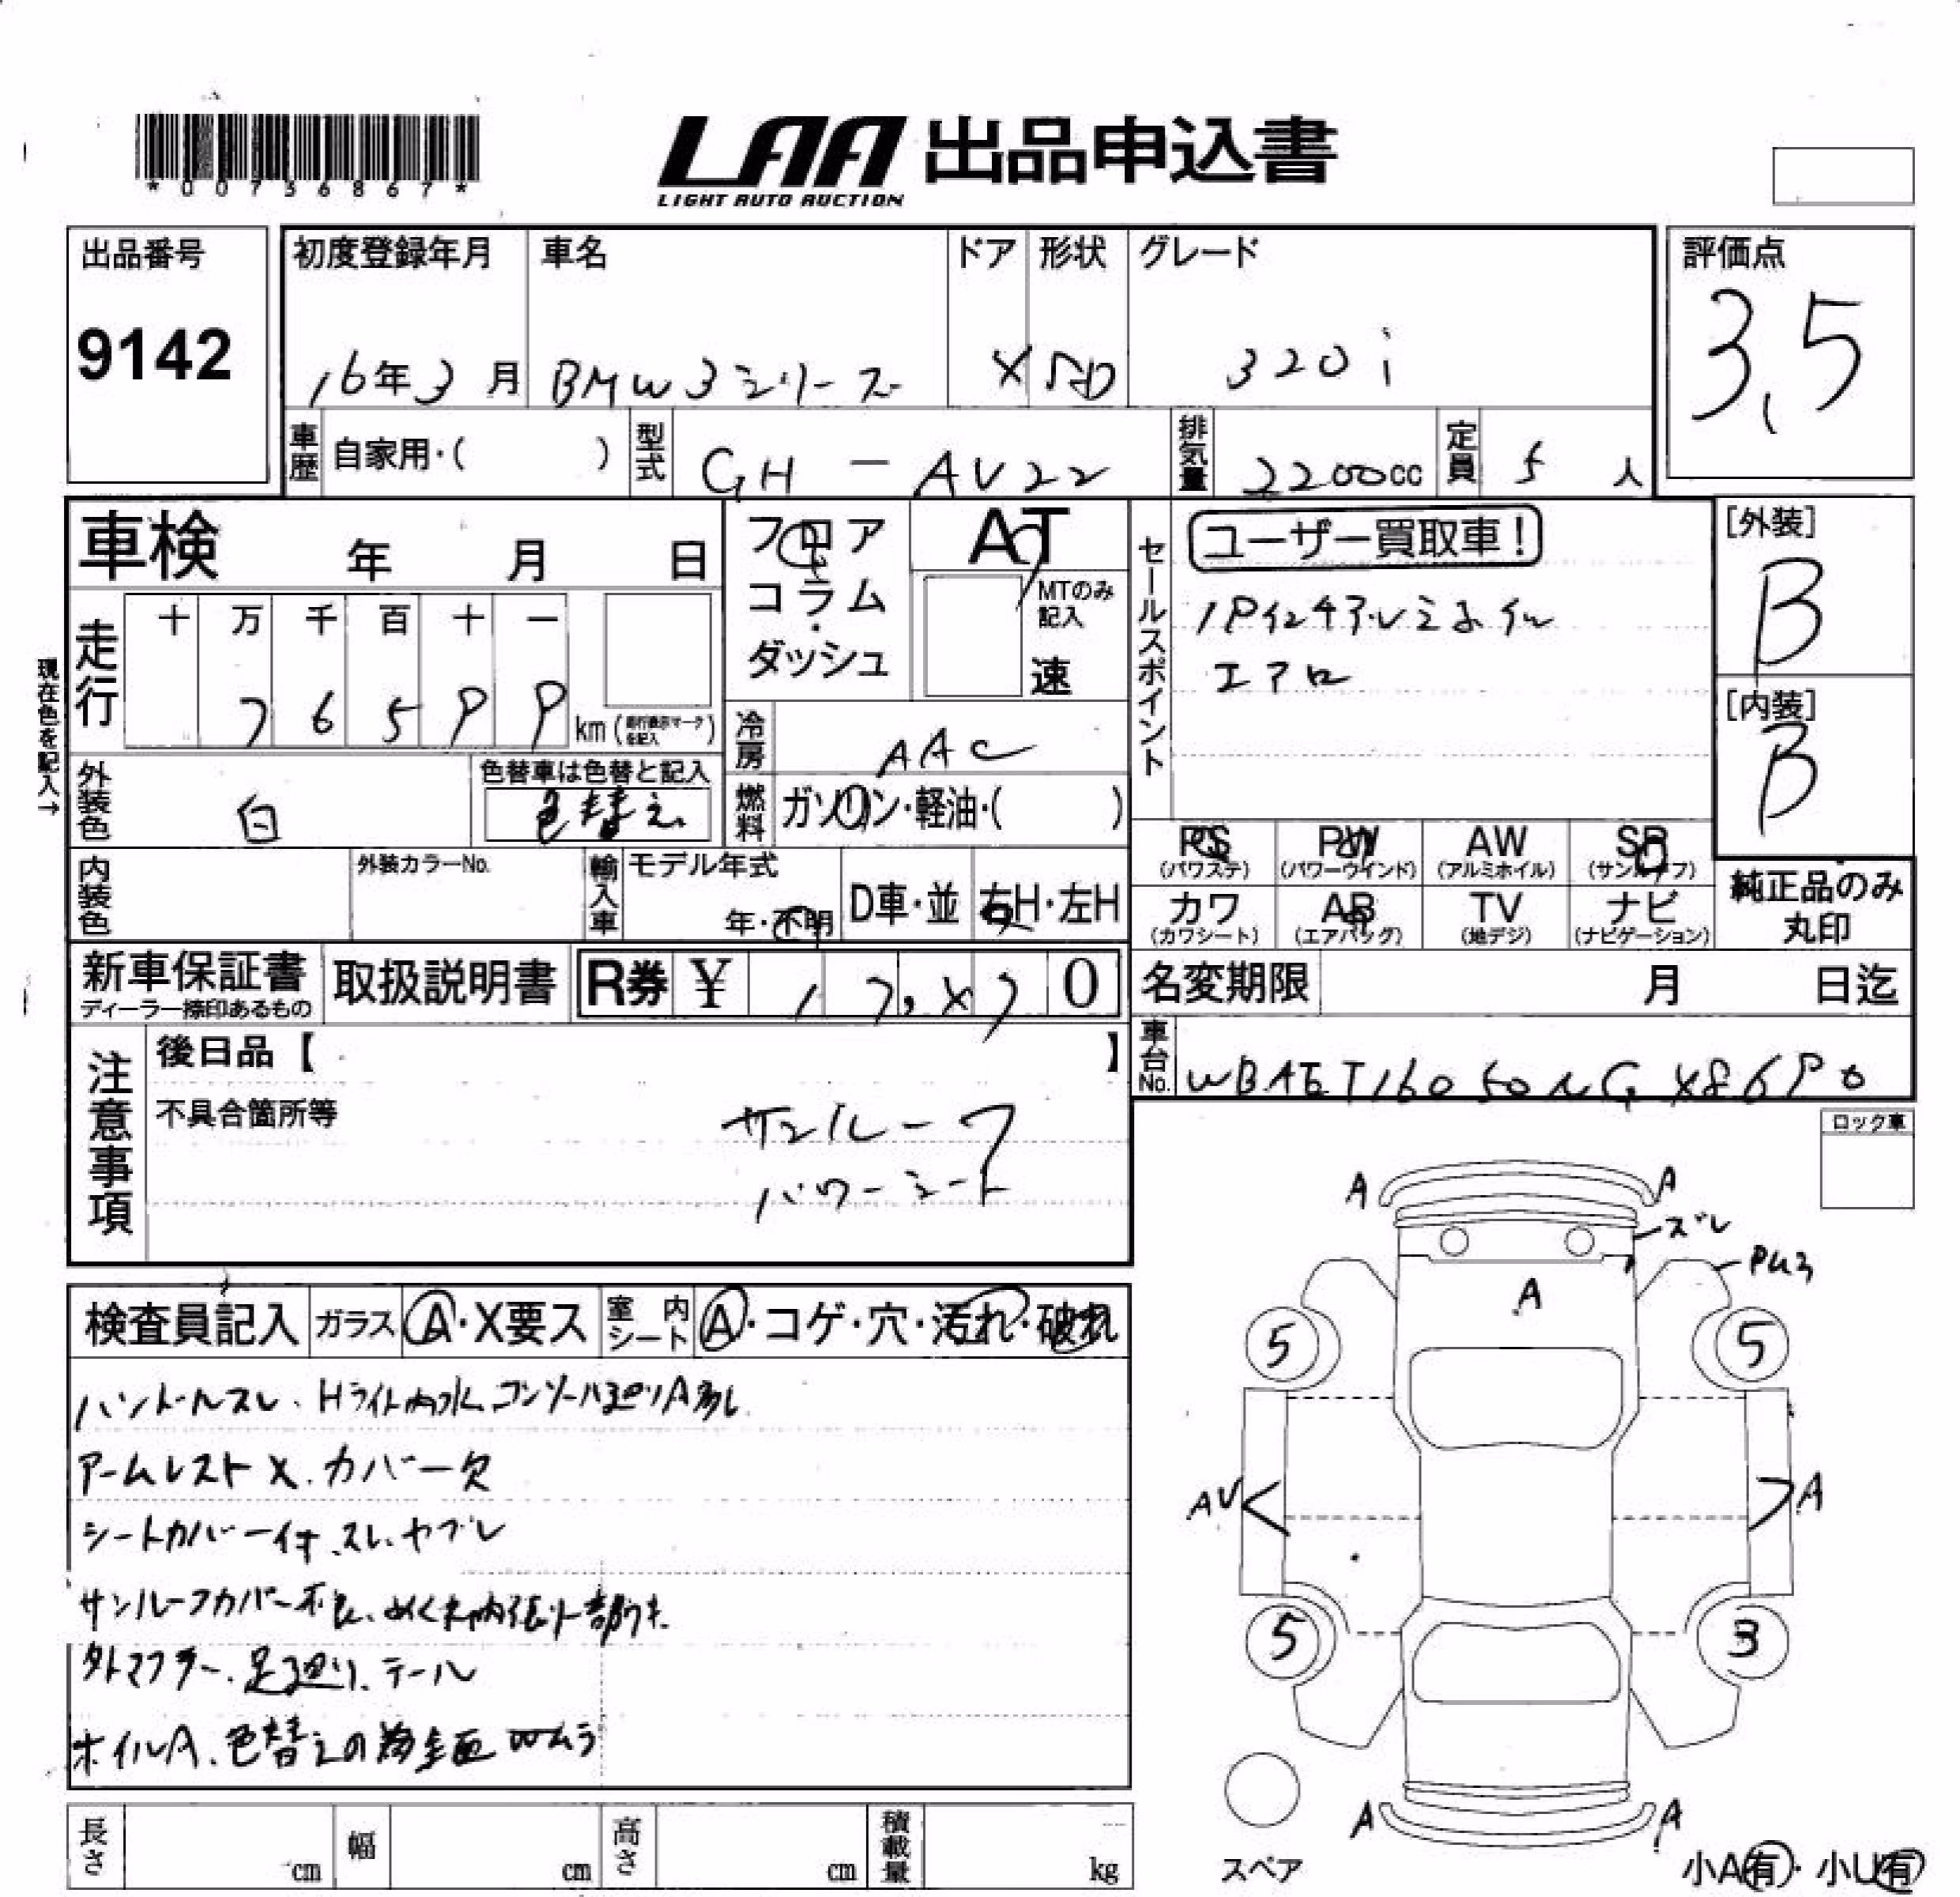 *00736867*
LAA 出品申込書
LIGHT AUTO AUCTION
出品番号
9142
初度登録年月
16年3月
車名
BMW3シリーズ
ドア
X
形状
SD
グレード
320i
評価点
3.5
車歴
自家用・( )
型式
GH-AV22
排気量
2200cc
定員
5人
車検 年 月 日
フロア
コラム
ダッシュ
AT
MTのみ
記入
速
セールスポイント
ユーザー買取車!
エアロ
[外装]
B
[内装]
B
現在色を記入→
走行
十 万 千 百 十 一
7 6 5 9 9
km (走行表示マークを記入)
冷房
AAC
外装色
白
色替車は色替と記入
色替え
燃料
ガソリン・軽油・( )
PS
(パワステ)
PW
(パワーウインド)
AW
(アルミホイル)
SR
(サンルーフ)
カワ
(カワシート)
AB
(エアバッグ)
TV
(地デジ)
ナビ
(ナビゲーション)
純正品のみ
丸印
内装色
外装カラーNo.
輸入車
モデル年式
年・不明
D車・並
右H・左H
新車保証書
ディーラー捺印あるもの
取扱説明書
R券
¥
0
名変期限 月 日迄
注意事項
後日品【 】
不具合箇所等
サンルーフ
パワーシート
車台No.
ロック車
検査員記入
ガラス
A・X要ス
室内シート
A・コゲ・穴・汚れ・破れ
ハンドルスレ、Hライト内水、コンソール廻りA多し
アームレストX、カバー欠
シートカバー付、スレ、ヤブレ
サンルーフカバー不良、めくれ、内張り一部うき
外マフラー、足廻り、テール
ホイルA、色替えの為全面Wムラ
A
A
ズレ
A
5
5
AV
A
5
3
A
A
スペア
小A有・小U有
長さ cm
幅 cm
高さ cm
積載量 kg